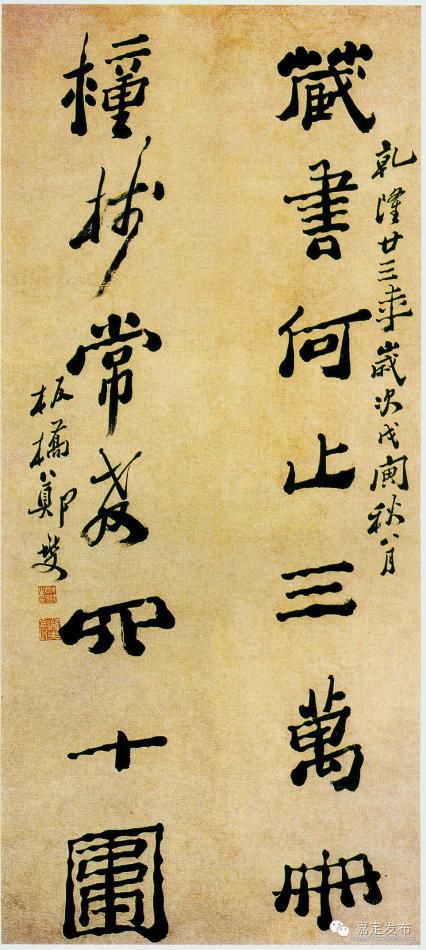 乾隆廿三年歲次戊寅秋八月
藏書何止三萬冊
種樹常教四十圍
板橋鄭燮
嘉定发布